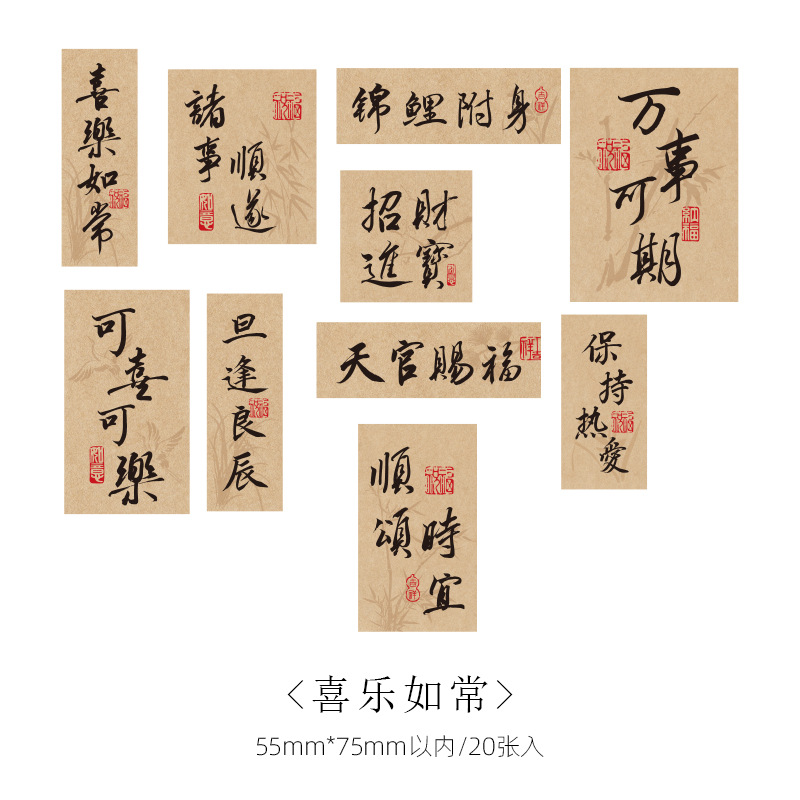 喜樂如常
諸事
順遂
錦鯉附身
万事可期
招財
進寶
可喜可樂
旦逢良辰
天官賜福
保持热愛
順頌
時宜
〈喜乐如常〉
55mm*75mm以内/20张入